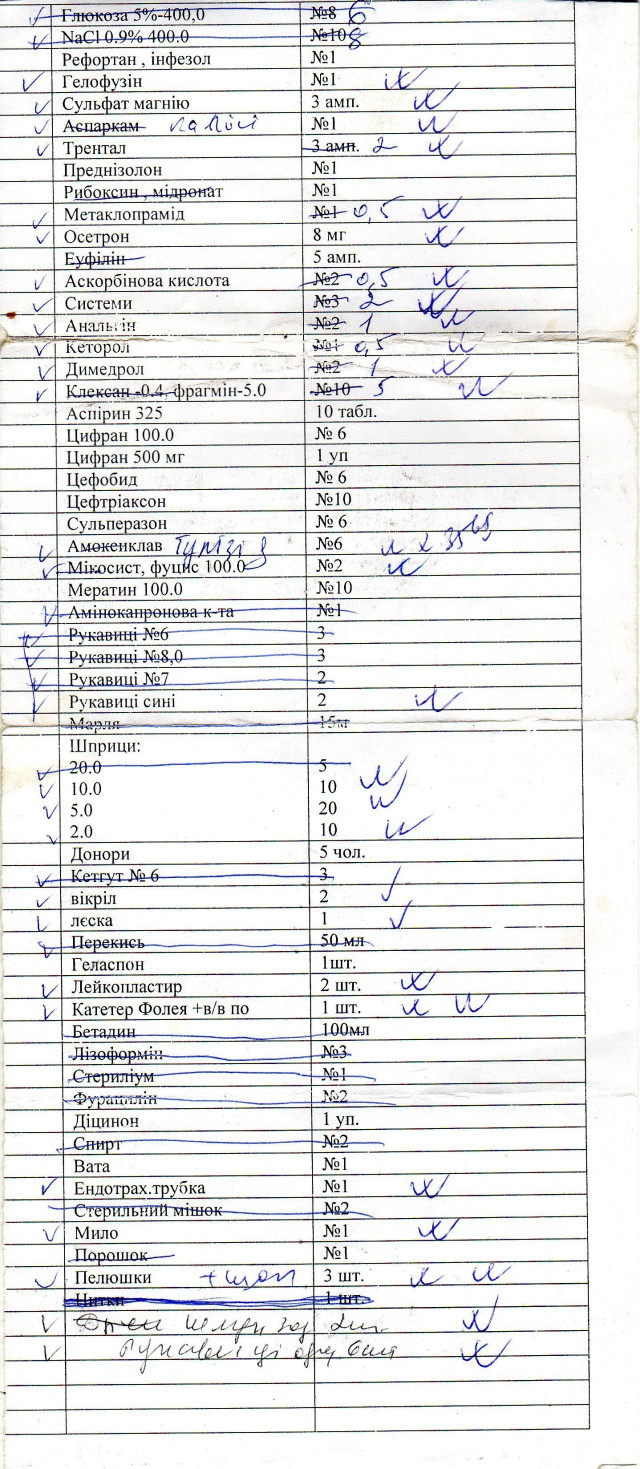 Глюкоза 5%-400,0 №8 6
NaCl 0.9% 400.0 №10 8
Рефортан , інфезол №1
Гелофузін №1
Сульфат магнію 3 амп.
Аспаркам №1
Трентал 3 амп. 2
Преднізолон №1
Рибоксин , мідронат №1
Метаклопрамід №1 0,5
Осетрон 8 мг
Еуфілін 5 амп.
Аскорбінова кислота №2 0,5
Системи №3 2
Анальгін №2 1
Кеторол №1 0,5
Димедрол №2 1
Клексан -0.4, фрагмін-5.0 №10 5
Аспірин 325 10 табл.
Цифран 100.0 № 6
Цифран 500 мг 1 уп
Цефобид № 6
Цефтріаксон №10
Сульперазон № 6
Амоксиклав №6
Мікосист, фуцис 100.0 №2
Мератин 100.0 №10
Амінокапронова к-та №1
Рукавиці №6 3
Рукавиці №8,0 3
Рукавиці №7 2
Рукавиці сині 2
Марля 15м
Шприци:
20.0 5
10.0 10
5.0 20
2.0 10
Донори 5 чол.
Кетгут № 6 3
вікріл 2
лєска 1
Перекись 50 мл
Геласпон 1шт.
Лейкопластир 2 шт.
Катетер Фолея +в/в по 1 шт.
Бетадин 100мл
Лізоформін №3
Стериліум №1
Фурацилін №2
Діцинон 1 уп.
Спирт №2
Вата №1
Ендотрах.трубка №1
Стерильний мішок №2
Мило №1
Порошок №1
Пелюшки 3 шт.
Нитки 1 шт.